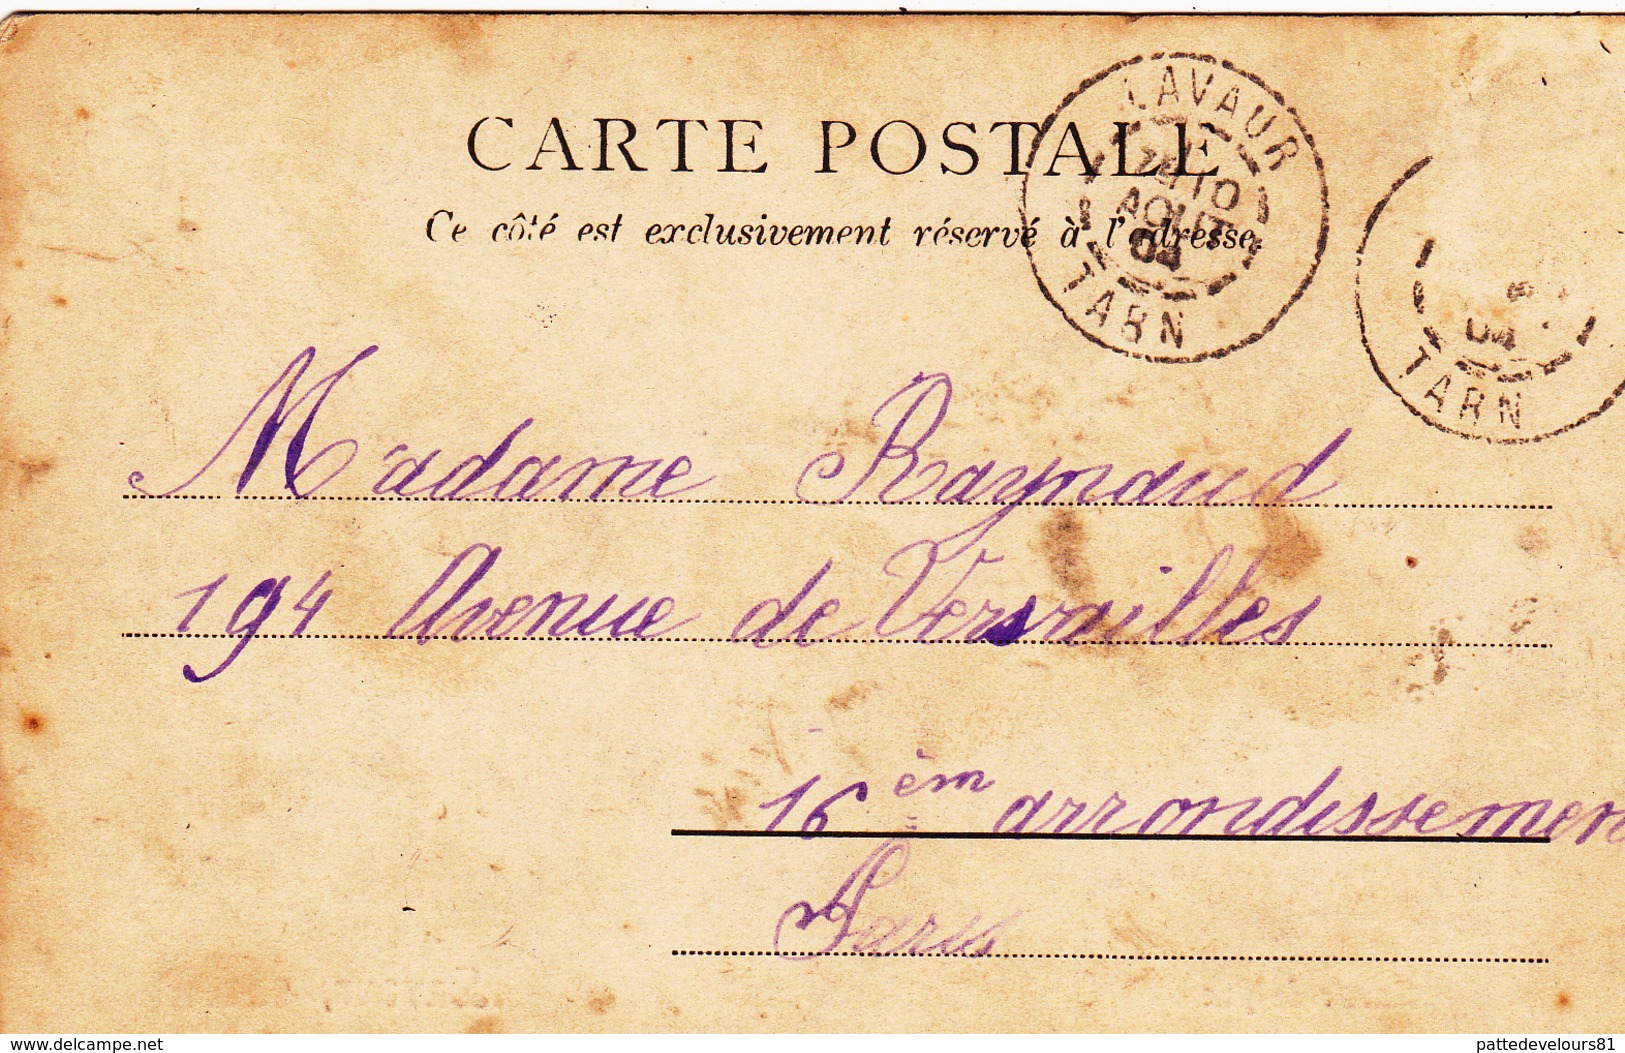 CARTE POSTALE
Ce côté est exclusivement réservé à l'adresse
LAVAUR
10
AOUT
04
TARN
04
TARN
Madame Raynaud
194 Avenue de Versailles
16 èm arrondissemen
Paris
delcampe.net
pattedevelours81